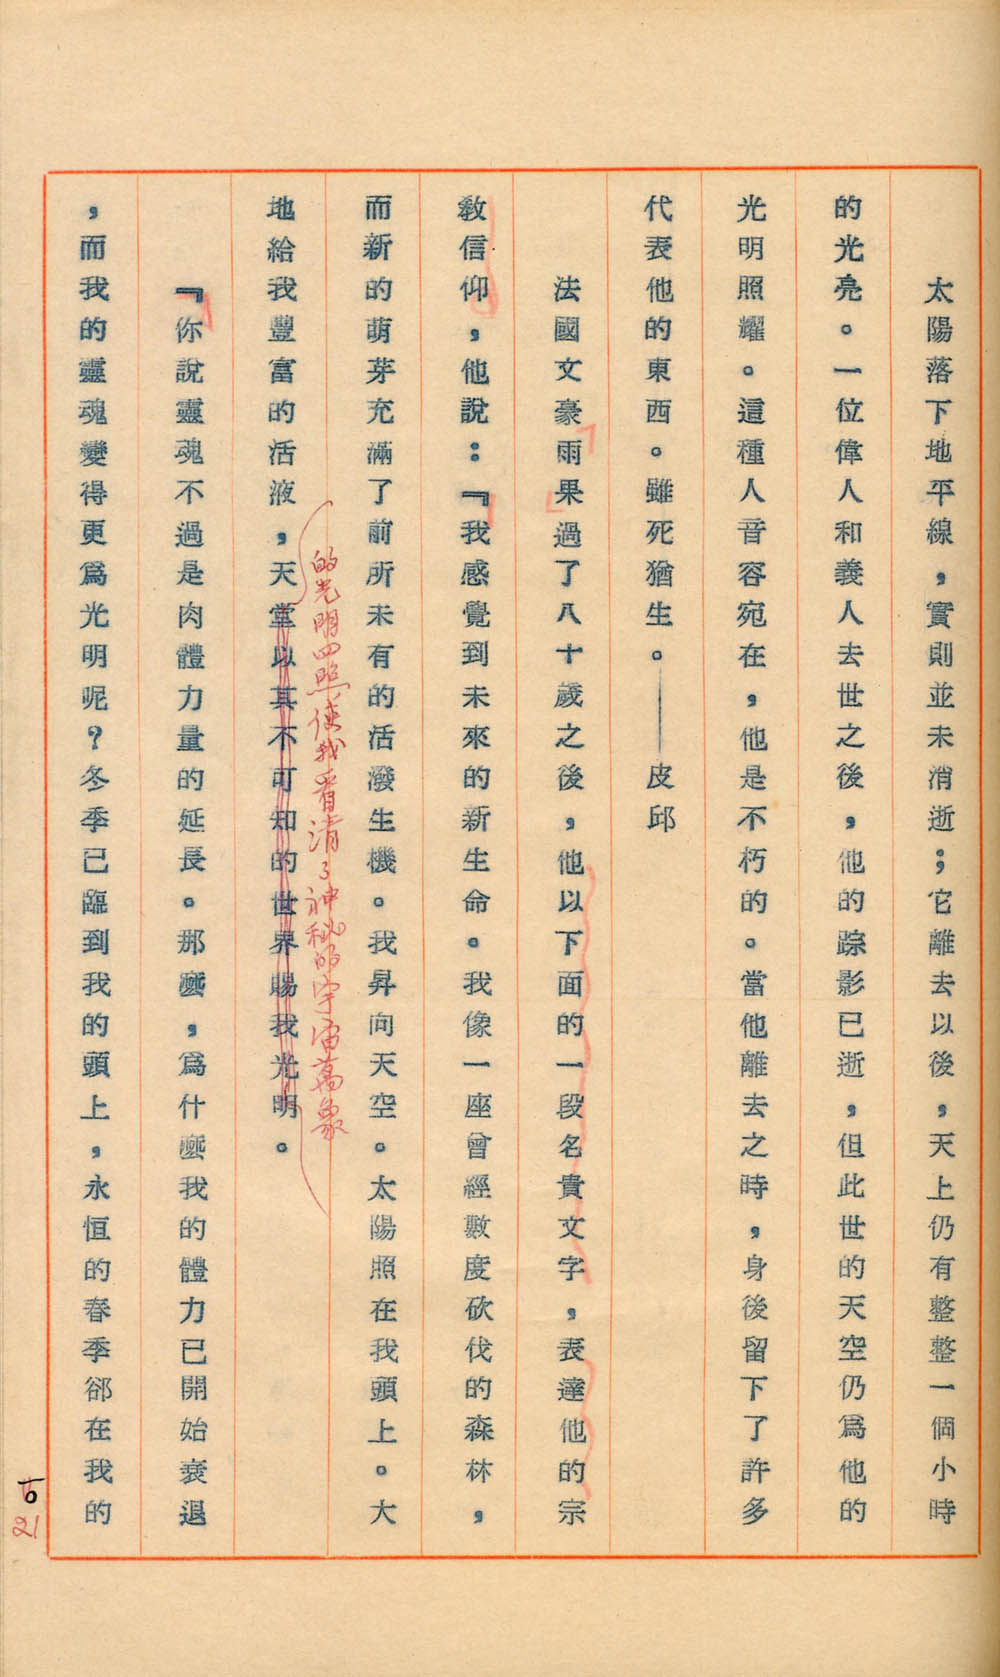 太陽落下地平線，實則並未消逝；它離去以後，天上仍有整整一個小時
的光亮。一位偉人和義人去世之後，他的踪影已逝，但此世的天空仍爲他的
光明照耀。這種人音容宛在，他是不朽的。當他離去之時，身後留下了許多
代表他的東西。雖死猶生。——皮邱
法國文豪雨果過了八十歲之後，他以下面的一段名貴文字，表達他的宗
教信仰，他說：『我感覺到未來的新生命。我像一座曾經數度砍伐的森林，
而新的萌芽充滿了前所未有的活潑生機。我昇向天空。太陽照在我頭上。大
的光明四照，使我看清了神秘的宇宙萬象
地給我豐富的活液，天堂以其不可知的世界賜我光明。
『你說靈魂不過是肉體力量的延長。那麼，爲什麼我的體力已開始衰退
，而我的靈魂變得更爲光明呢？冬季已臨到我的頭上，永恒的春季郤在我的
21